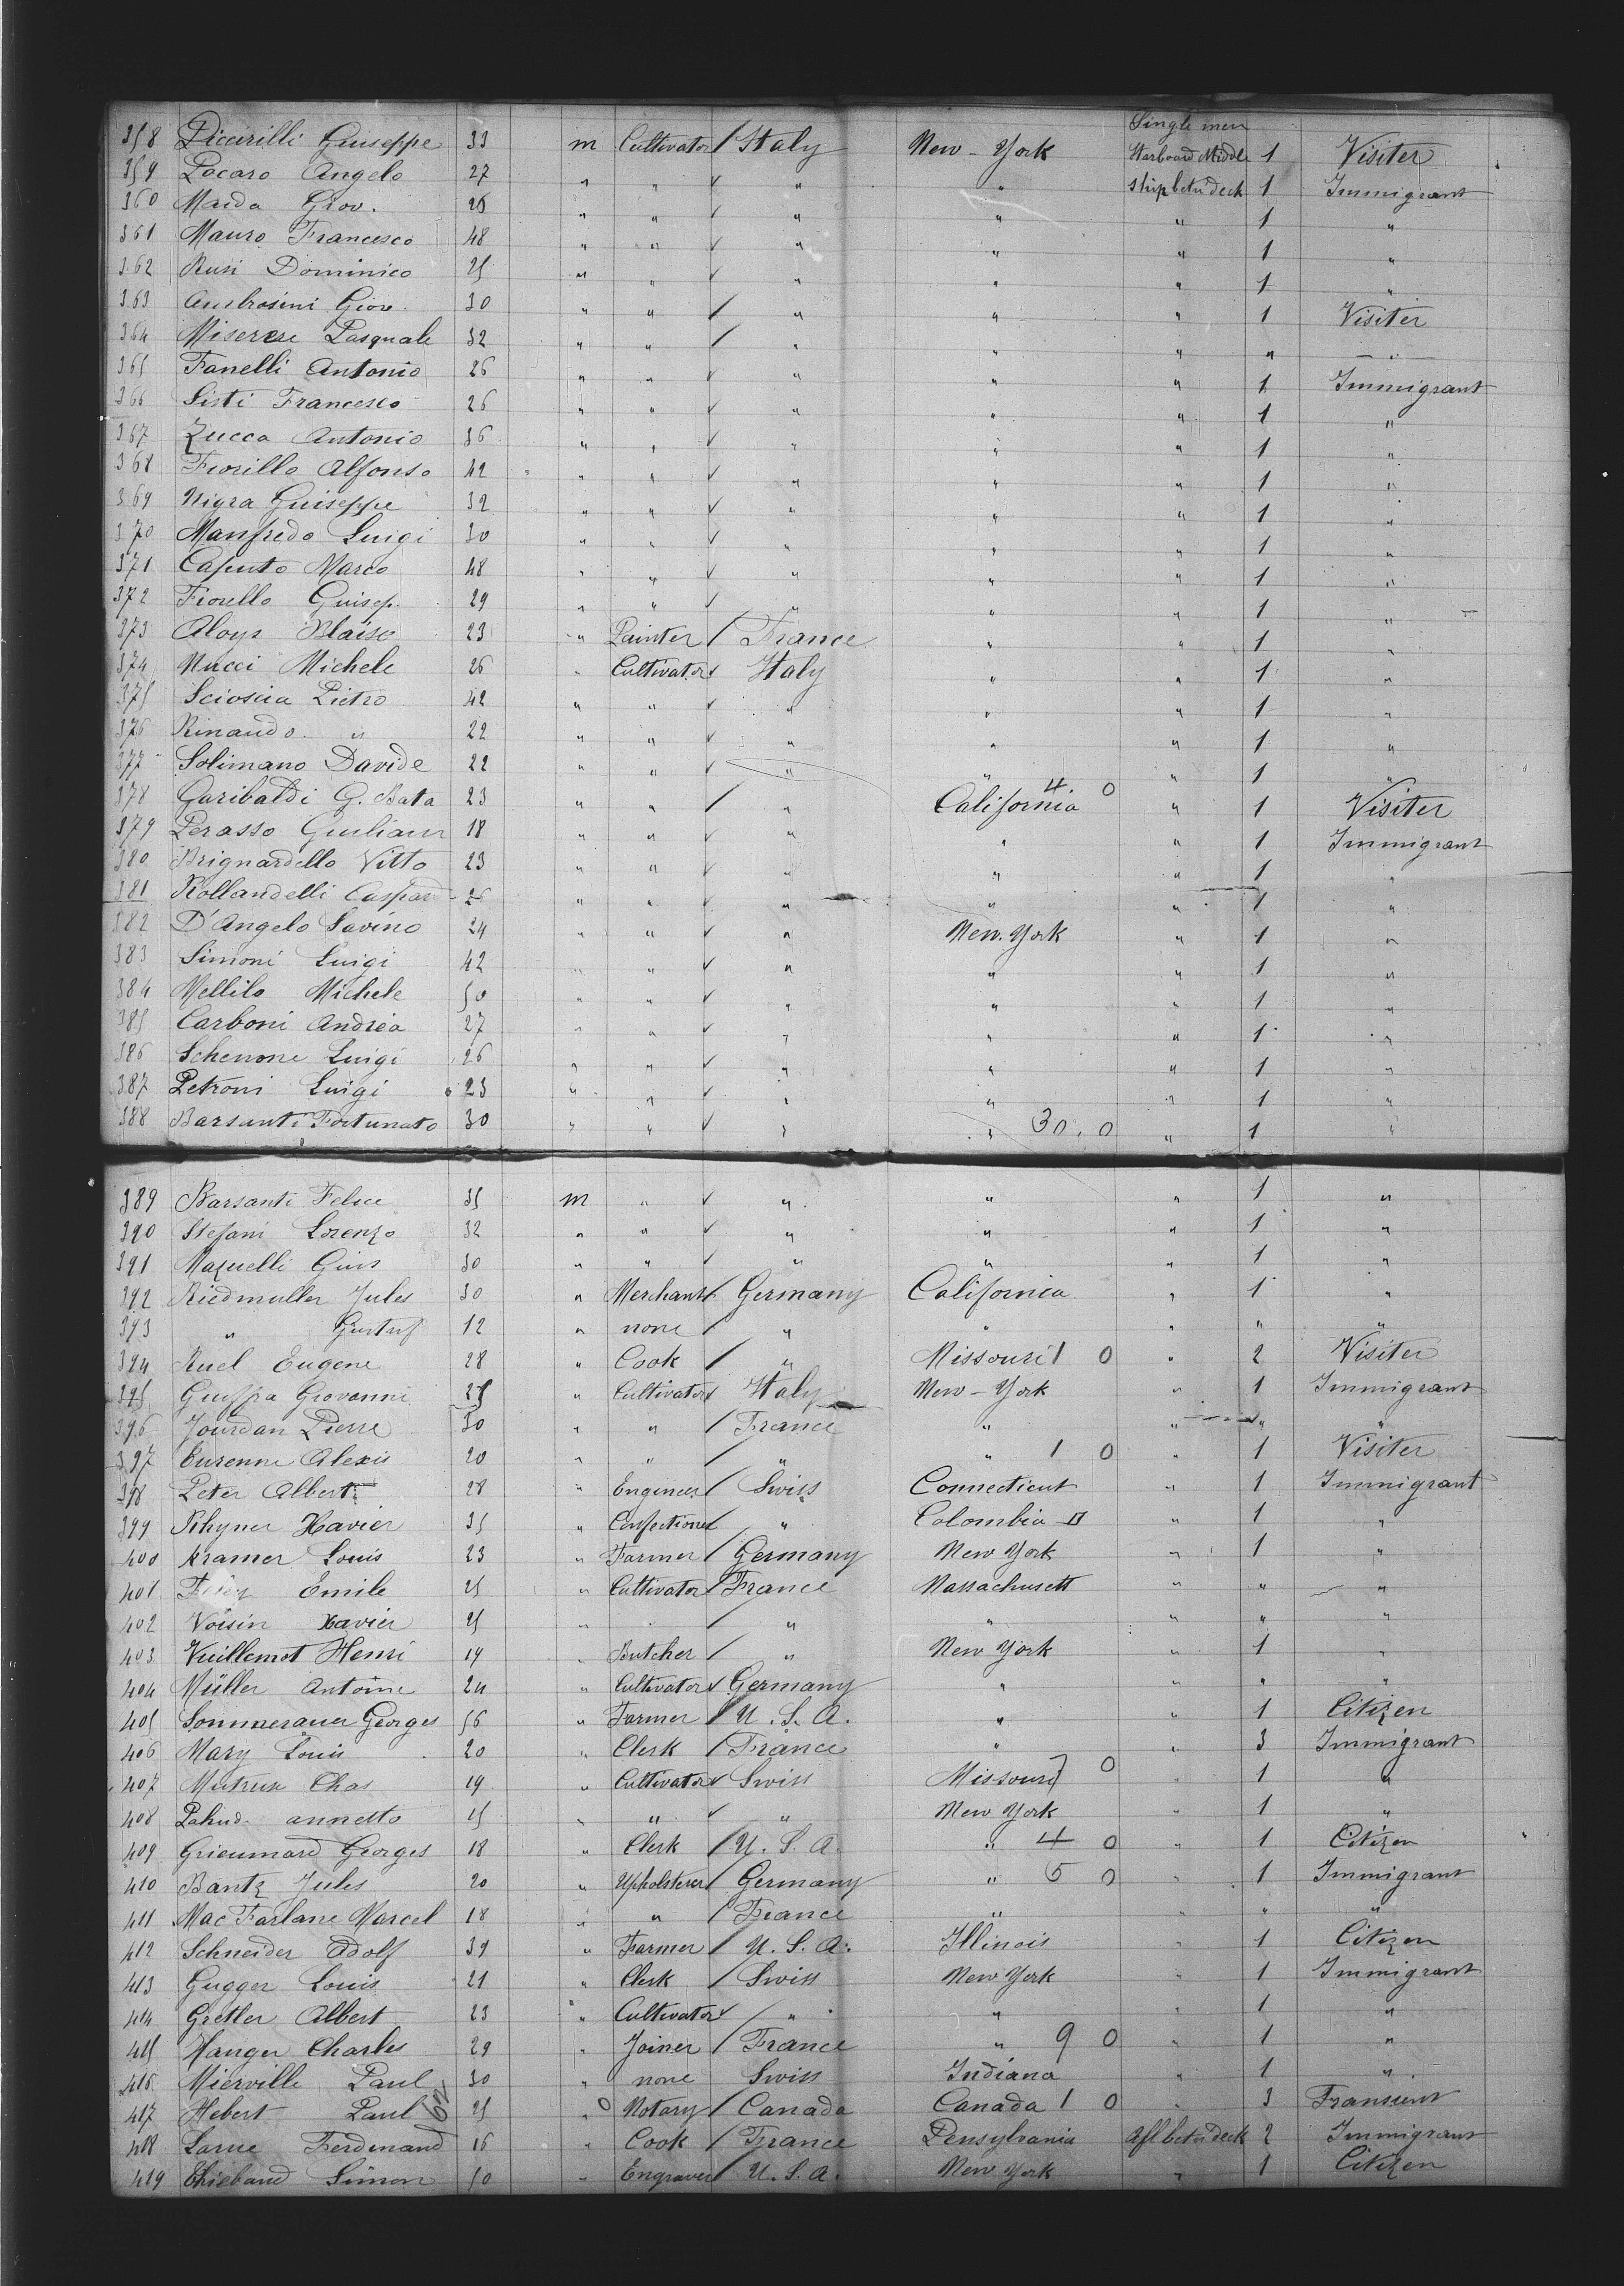 Single men
358 Piccirilli Guiseppe 33 m Cultivator / Italy New-York Starboard Middle 1 Visiter
359 Pocaro Angelo 27 " " ✓ " " ship betw deck 1 Immigrant
360 Maida Giov. 26 " " ✓ " " " 1 "
361 Mauro Francesco 48 " " ✓ " " " 1 "
362 Rusi Dominico 25 " " ✓ " " " 1 "
363 Ambrosini Giov. 30 " " / " " " 1 Visiter
364 Miserere Pasquale 32 " " / " " " " "
365 Fanelli Antonio 26 " " ✓ " " " 1 Immigrant
366 Sisti Francesco 26 " " ✓ " " " 1 "
367 Zucca Antonio 36 " " ✓ " " " 1 "
368 Fiorillo Alfonso 42 " " ✓ " " " 1 "
369 Nigra Guiseppe 32 " " ✓ " " " 1 "
370 Manfredo Luigi 30 " " ✓ " " " 1 "
371 Caputo Marco 48 " " ✓ " " " 1 "
372 Fiorello Guisep. 29 " " ✓ " " " 1 "
373 Aloys Blaise 23 " Painter / France " " 1 "
374 Nucci Michele 26 " Cultivator ✓ Italy " " 1 "
375 Scioscia Pietro 42 " " ✓ " " " 1 "
376 Rinaudo " 22 " " ✓ " " " 1 "
377 Solimano Davide 22 " " ✓ " " " 1 "
378 Garibaldi G. Bata 23 " " / " California 4. 0 " 1 Visiter
379 Perasso Giuliam 18 " " ✓ " " " 1 Immigrant
380 Brignardello Vitto 23 " " ✓ " " " 1 "
381 Rollandelli Caspard 26 " " ✓ " " " 1 "
382 D'Angelo Savino 24 " " ✓ " New-York " 1 "
383 Simoni Luigi 42 " " ✓ " " " 1 "
384 Mellilo Michele 50 " " ✓ " " " 1 "
385 Carboni Andrea 27 " " ✓ " " " 1 "
386 Schenone Luigi 26 " " ✓ " " " 1 "
387 Petroni Luigi 23 " " ✓ " " " 1 "
388 Barsanti Fortunato 30 " " ✓ " " 30. 0 " 1 "
389 Barsanti Felice 35 m " ✓ " " " 1 "
390 Stefani Lorenzo 32 " " ✓ " " " 1 "
391 Mazuelli Gius 30 " " ✓ " " " 1 "
392 Riedmuller Jules 30 " Merchant / Germany California " 1 "
393 " Gustuf 12 " none / " " " " "
394 Ruel Eugene 28 " Cook / " Missouri 1 0 " 2 Visiter
395 Giovanni " Cultivator ✓ Italy New-York " 1 Immigrant
396 Jourdan Pierre 30 " " / France " " " "
397 Eurenne Alexis 20 " " / " " 1 0 " 1 Visiter
398 Peter Albert 28 " Engineer / Swiss Connecticut " 1 Immigrant
399 Rhyner Xavier 35 " Confectioner / " Colombia " 1 "
400 Kramer Louis 23 " Farmer / Germany New York " 1 "
401 Emile 25 " Cultivator / France Massachusett " " "
402 Voisin Xavier 25 " " / " " " " "
403 Vuillemot Henri 19 " Butcher / " New York " 1 "
404 Müller Antoine 24 " Cultivator ✓ Germany " " " "
405 Sommerauer Georges 56 " Farmer / U.S.A. " " 1 Citizen
406 Mary Louis 20 " Clerk / France " " 3 Immigrant
407 Mutrux Chas 19 " Cultivator ✓ Swiss Missouri 7 0 " 1 "
408 Pahud annetto 25 " " ✓ " New York " 1 "
409 Grieumard Georges 18 " Clerk / U.S.A. " 4 0 " 1 Citizen
410 Bantz Jules 20 " Upholsterer / Germany " 5 0 " 1 Immigrant
411 Mac Farlane Marcel 18 " " / France " " " "
412 Schneider Adolf 39 " Farmer / U.S.A. Illinois " 1 Citizen
413 Gugger Louis 21 " Clerk / Swiss New York " 1 Immigrant
414 Gretler Albert 23 " Cultivator ✓ " " " 1 "
415 Hanger Charles 29 " Joiner / France " 9 0 " 1 "
416 Mierville Paul 30 " none Swiss Indiana " 1 "
417 Hebert Paul 25 " 0 Notary / Canada Canada 1 0 " 3 Transient
418 Larue Ferdinand 16 " Cook / France Pensylvania Aft betw deck 2 Immigrant
419 Thiebaud Simon 50 " Engraver / U.S.A. New York " 1 Citizen